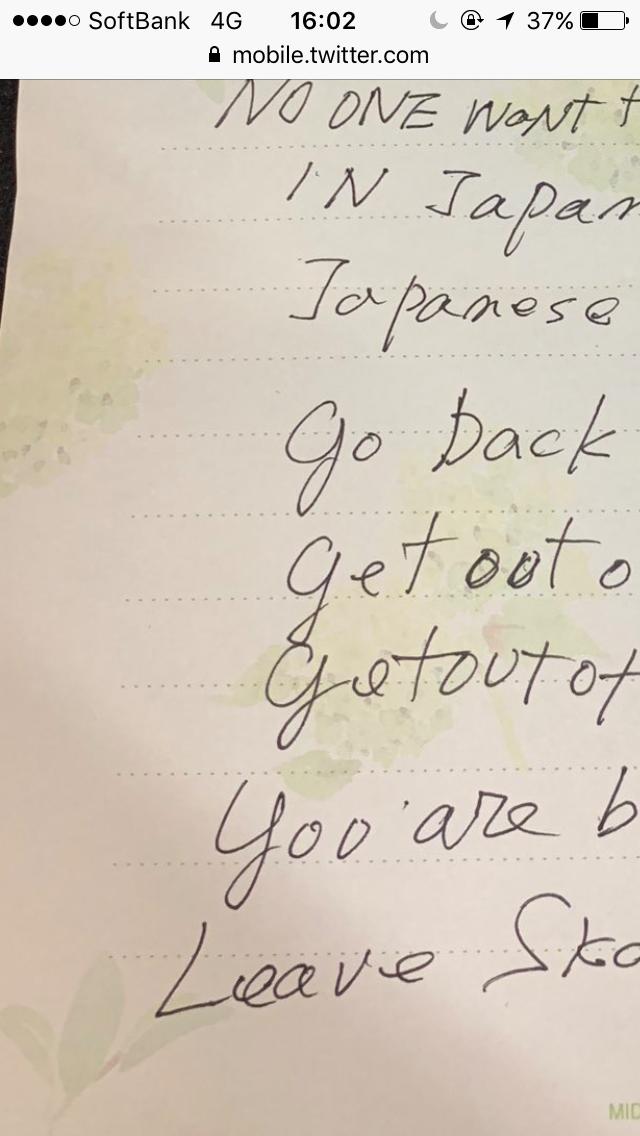 ●●●●○ SoftBank 4G 16:02 37%
mobile.twitter.com
NO ONE WANT t
IN Japan
Japanese
Go back
Get out o
Get out of
You are b
Leave Ska
MID